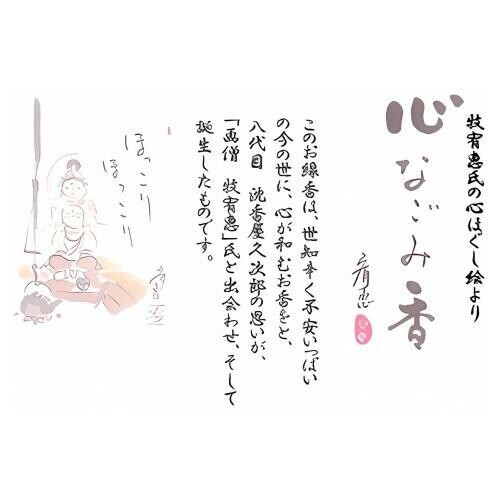 牧宥恵氏の心ほぐし絵より
心なごみ香
宥恵
このお線香は、世知辛く不安いっぱい
の今の世に、心が和むお香をと、
八代目 沈香屋久次郎の思いが、
「画僧 牧宥恵」氏と出会わせ、そして
誕生したものです。
ほっこり
ほっこり
宥恵